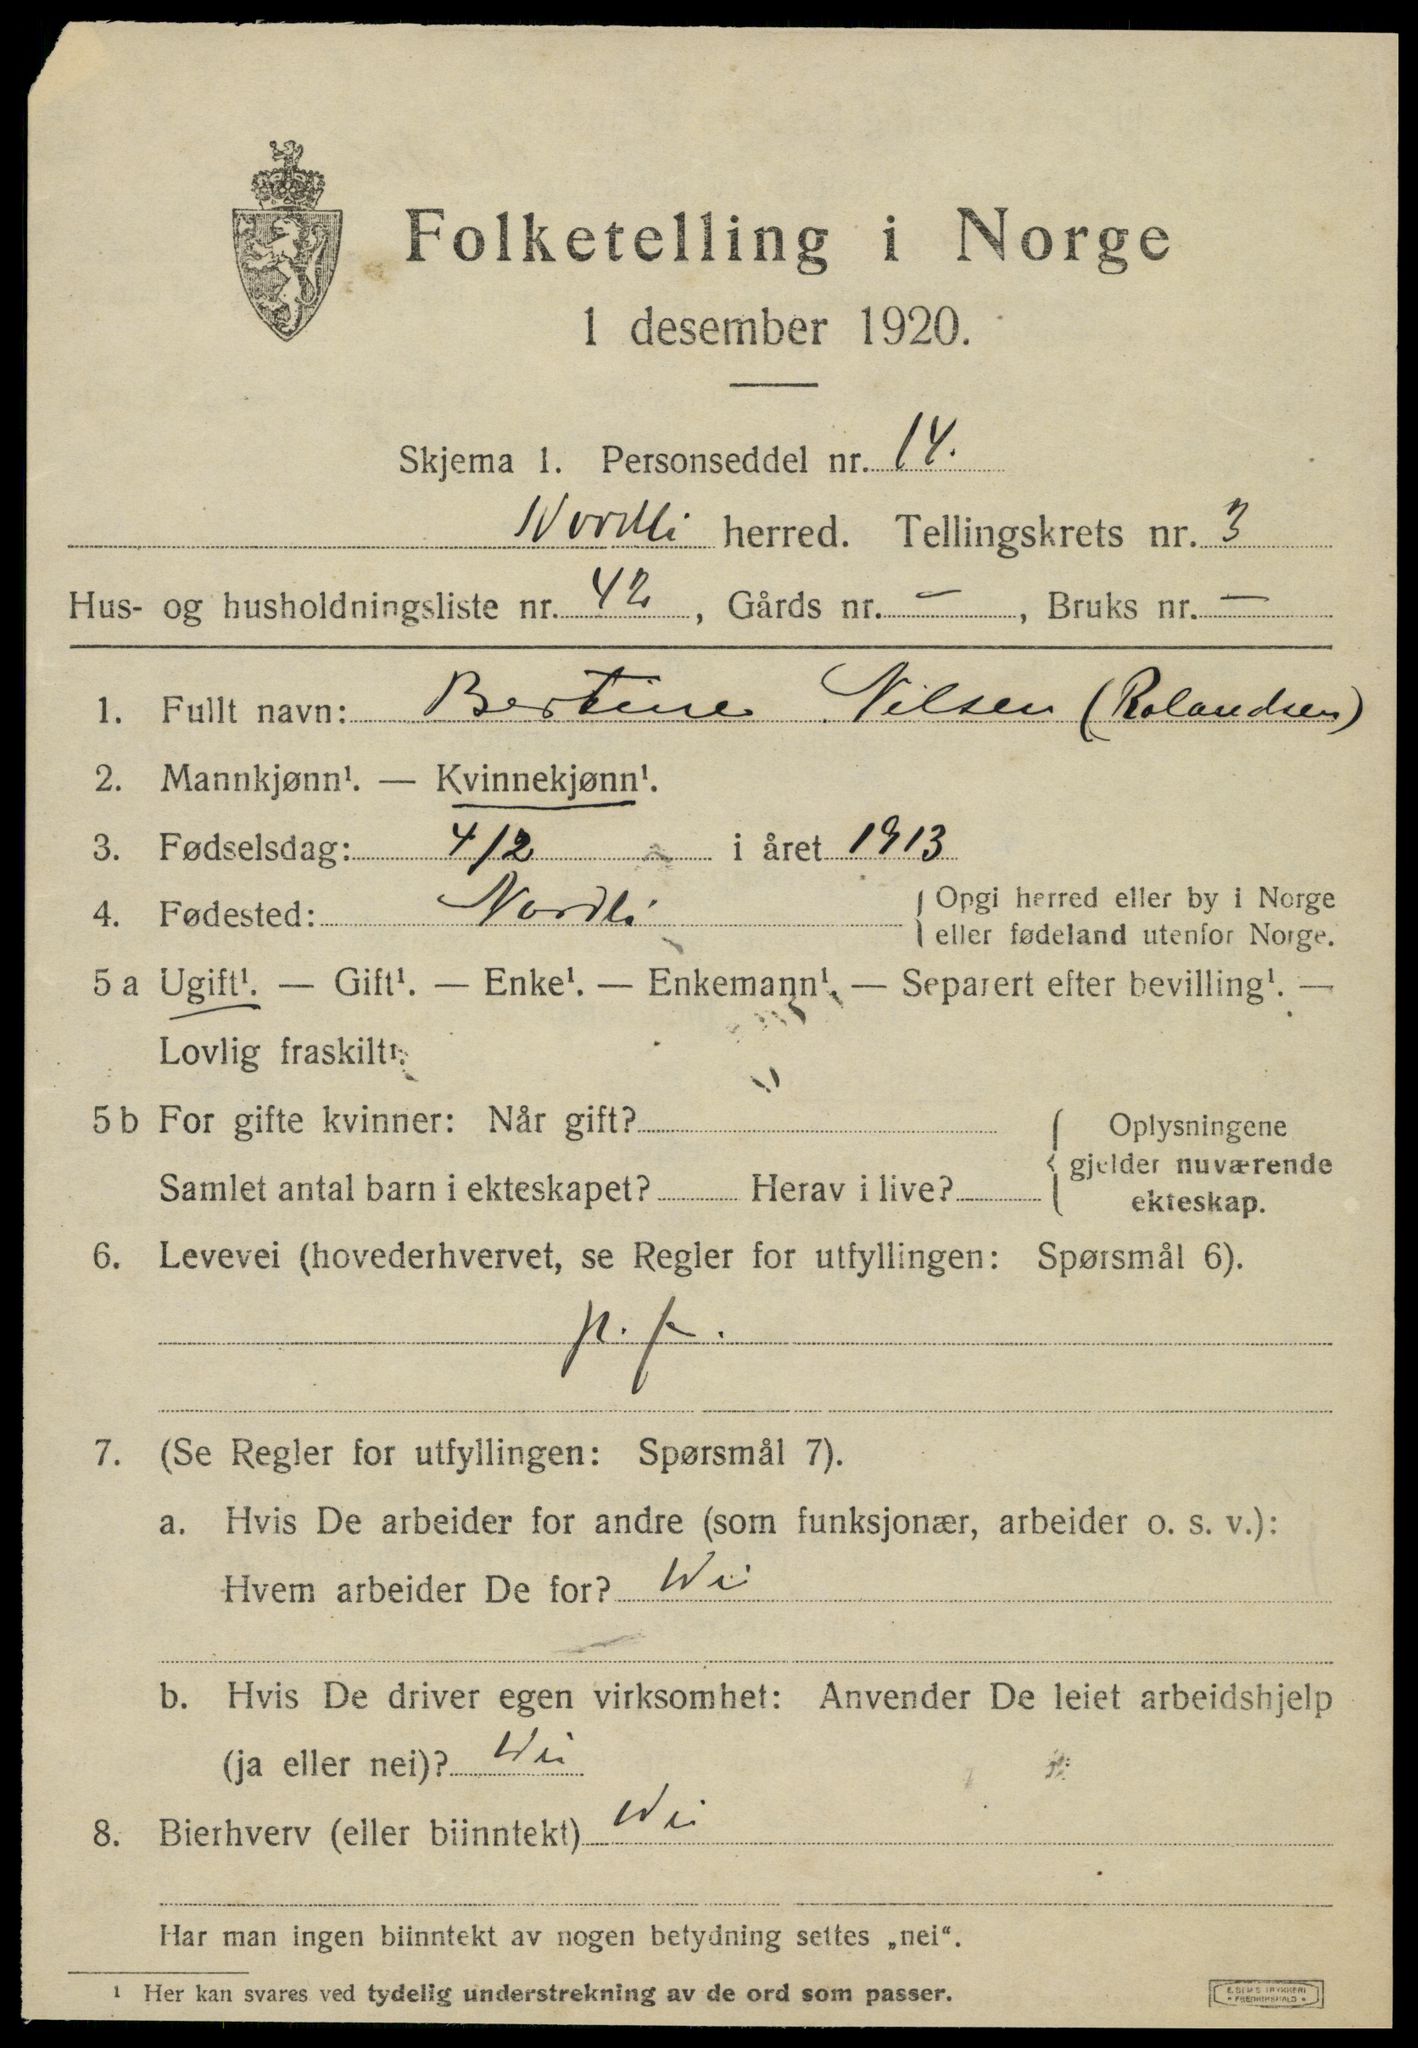 Folketelling i Norge
1 desember 1920.
Skjema 1. Personseddel nr. 14.
Nordli herred. Tellingskrets nr. 3
Hus- og husholdningsliste nr. 42, Gårds nr. —, Bruks nr. —
1. Fullt navn: Bertine Nilsen (Rolandsen)
2. Mannkjønn¹. — Kvinnekjønn¹.
3. Fødselsdag: 4/2 i året 1913
4. Fødested: Nordli { Opgi herred eller by i Norge
eller fødeland utenfor Norge.
5 a Ugift¹. — Gift¹. — Enke¹. — Enkemann¹. — Separert efter bevilling¹. —
Lovlig fraskilt¹.
5 b For gifte kvinner: Når gift?
Samlet antal barn i ekteskapet? Herav i live?
{ Oplysningene
gjelder nuværende
ekteskap.
6. Levevei (hovederhvervet, se Regler for utfyllingen: Spørsmål 6).
7. (Se Regler for utfyllingen: Spørsmål 7).
a. Hvis De arbeider for andre (som funksjonær, arbeider o. s. v.):
Hvem arbeider De for? Nei
b. Hvis De driver egen virksomhet: Anvender De leiet arbeidshjelp
(ja eller nei)? Nei
8. Bierhverv (eller biinntekt) Nei
Har man ingen biinntekt av nogen betydning settes „nei“.
¹ Her kan svares ved tydelig understrekning av de ord som passer.